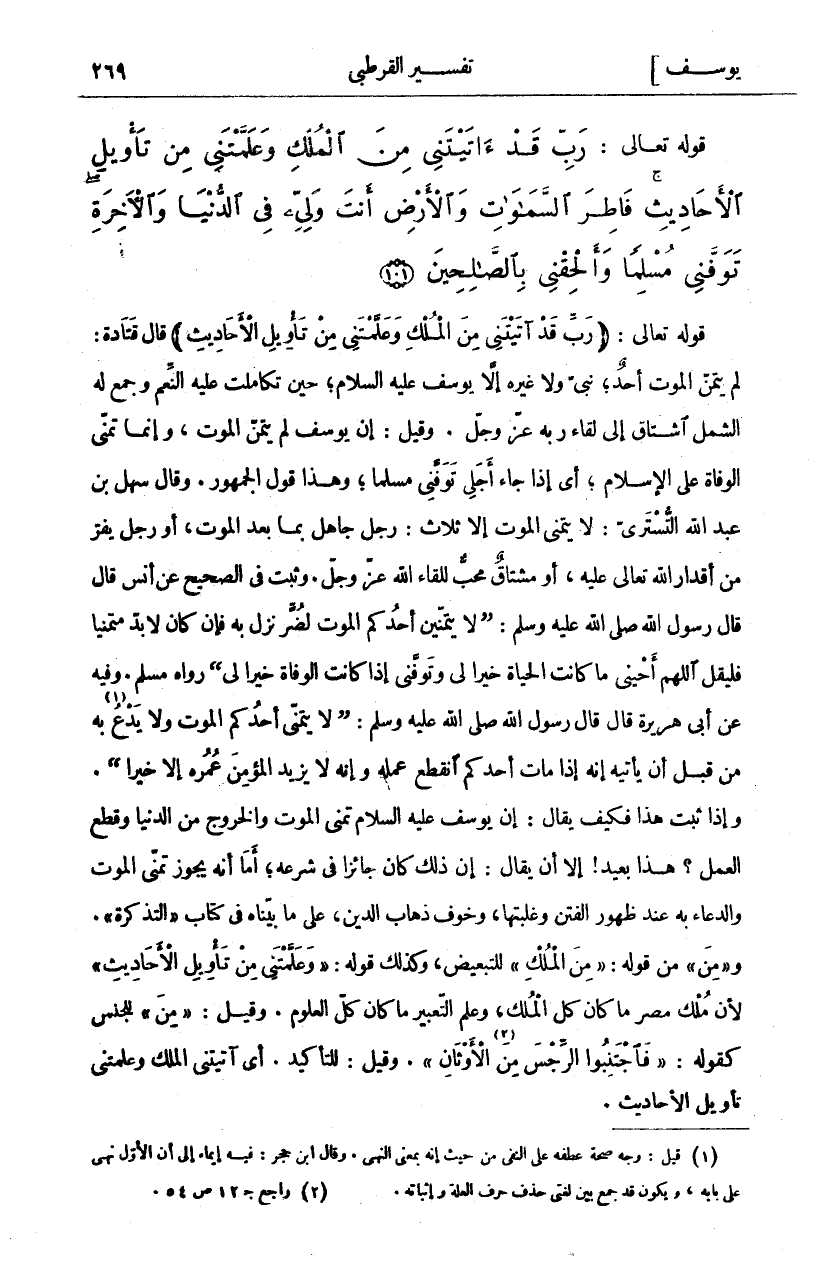 يوسف ]
تفسير القرطبي
٢٦٩
قوله تعالى : رَبِّ قَدْ ءَاتَيْتَنِى مِنَ ٱلْمُلْكِ وَعَلَّمْتَنِى مِن تَأْوِيلِ
ٱلْأَحَادِيثِۚ فَاطِرَ ٱلسَّمَٰوَٰتِ وَٱلْأَرْضِ أَنتَ وَلِىِّۦ فِى ٱلدُّنْيَا وَٱلْآخِرَةِۖ
تَوَفَّنِى مُسْلِمًا وَأَلْحِقْنِى بِٱلصَّٰلِحِينَ ﴿١٠١﴾
قوله تعالى : ﴿ رَبِّ قَدْ آتَيْتَنِى مِنَ الْمُلْكِ وَعَلَّمْتَنِى مِنْ تَأْوِيلِ الْأَحَادِيثِ ﴾ قال قَتَادة :
لم يتمنّ الموت أحدٌ؛ نبىّ ولا غيره إلّا يوسف عليه السلام؛ حين تكاملت عليه النِّعم وجمع له
الشمل ٱشتاق إلى لقاء ربه عزّ وجلّ . وقيل : إن يوسف لم يتمنّ الموت ، وإنما تمنّى
الوفاة على الإسلام ؛ أى إذا جاء أَجَلِى تَوَفَّنِى مسلما ؛ وهذا قول الجمهور . وقال سهل بن
عبد الله التُّسْتَرىّ : لا يتمنى الموت إلا ثلاث : رجل جاهل بما بعد الموت ، أو رجل يفرّ
من أقدار الله تعالى عليه ، أو مشتاقٌ محبٌّ للقاء الله عزّ وجلّ . وثبت فى الصحيح عن أنس قال
قال رسول الله صلى الله عليه وسلم : ” لا يتمنّين أحدُكم الموت لضُرٍّ نزل به فإن كان لابدّ متمنيا
فليقل ٱللهم أَحْيِنِى ما كانت الحياة خيرا لى وتَوفَّنى إذا كانت الوفاة خيرا لى “ رواه مسلم . وفيه
عن أبى هريرة قال قال رسول الله صلى الله عليه وسلم : ” لا يتمنّى أحدُكم الموت ولا يَدْعُ (١) به
من قبل أن يأتيه إنه إذا مات أحدكم ٱنقطع عمله وإنه لا يزيد المؤمنَ عُمُره إلا خيرا “ .
وإذا ثبت هذا فكيف يقال : إن يوسف عليه السلام تمنى الموت والخروج من الدنيا وقطع
العمل ؟ هذا بعيد! إلا أن يقال : إن ذلك كان جائزا فى شرعه؛ أَمَا أنه يجوز تمنّى الموت
والدعاء به عند ظهور الفتن وغلبتها، وخوف ذهاب الدين، على ما بيّناه فى كتاب «التذكرة» .
و«مِنَ» من قوله : « مِنَ الْمُلْكِ » للتبعيض، وكذلك قوله : « وَعَلَّمْتَنِى مِنْ تَأْوِيلِ الْأَحَادِيثِ »
لأن مُلْك مصر ما كان كل الْمُلك، وعلم التّعبير ما كان كلّ العلوم . وقيل : « مِنَ » للجنس
كقوله : « فَٱجْتَنِبُوا الرِّجْسَ مِنَ (٢) الْأَوْثَانِ » . وقيل : للتأكيد . أى آتيتنى الملك وعلمتنى
تأويل الأحاديث .
(١) قيل : وجه صحة عطفه على النفى من حيث إنه بمعنى النهى . وقال ابن حجر : فيه إيماء إلى أن الأوّل نهى
على بابه ، ويكون قد جمع بين لغتى حذف حرف العلة وإثباته .
(٢) راجع جـ ١٢ ص ٥٤ .